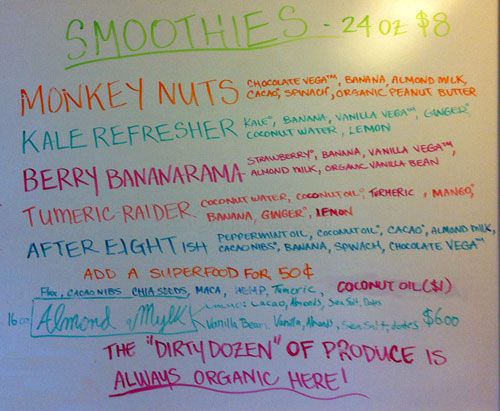 SMOOTHIES - 24 OZ $8
MONKEY NUTS CHOCOLATE VEGA™, BANANA, ALMOND MILK,
CACAO°, SPINACH, ORGANIC PEANUT BUTTER
KALE REFRESHER KALE°, BANANA, VANILLA VEGA™, GINGER°
COCONUT WATER, LEMON
BERRY BANANARAMA STRAWBERRY°, BANANA, VANILLA VEGA™,
ALMOND MILK, ORGANIC VANILLA BEAN
TUMERIC-RAIDER COCONUT WATER, COCONUT OIL°, TURMERIC, MANGO°,
BANANA, GINGER°, LEMON
AFTER EIGHTISH PEPPERMINT OIL, COCONUT OIL°, CACAO°, ALMOND MILK,
CACAO NIBS°, BANANA, SPINACH, CHOCOLATE VEGA™
ADD A SUPERFOOD FOR 50¢
Flax, CACAO NIBS, CHIA SEEDS, MACA, HEMP, Tumeric, COCONUT OIL ($1)
16oz Almond Mylk Cacao, Almonds, Sea Salt, Dates
Vanilla Bean: Vanilla, Almonds, Sea Salt, dates $6.00
THE "DIRTY DOZEN" OF PRODUCE IS
ALWAYS ORGANIC HERE!